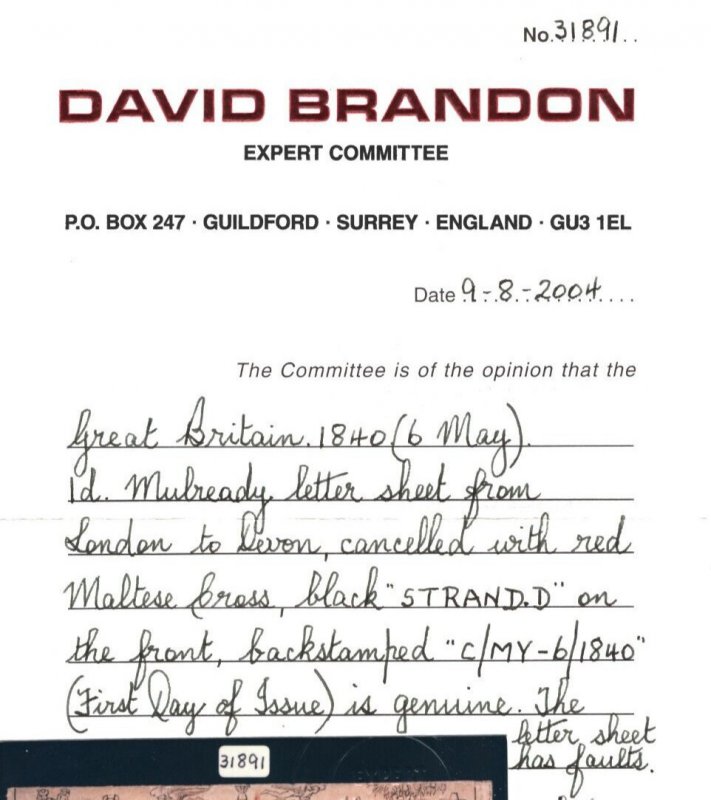 No. 31891..
DAVID BRANDON
EXPERT COMMITTEE
P.O. BOX 247 · GUILDFORD · SURREY · ENGLAND · GU3 1EL
Date 9-8-2004....
The Committee is of the opinion that the
Great Britain. 1840 (6 May).
1d. Mulready letter sheet from
London to Devon, cancelled with red
Maltese Cross, black "STRAND.D" on
the front, backstamped "C/MY-6/1840"
(First Day of Issue) is genuine. The
letter sheet
has faults.
31891